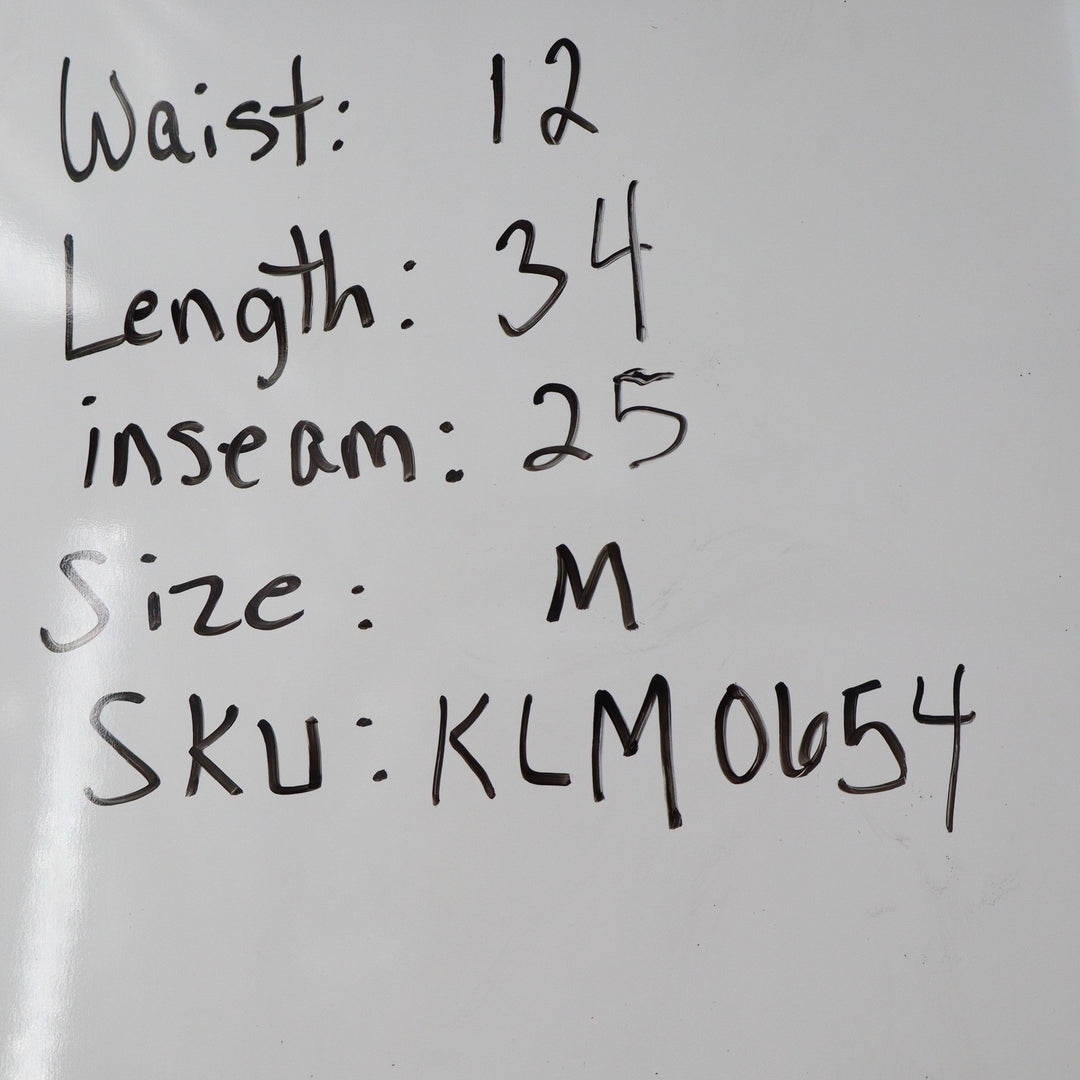 Waist: 12
Length: 34
inseam: 25
Size: M
SKU: KLM0654